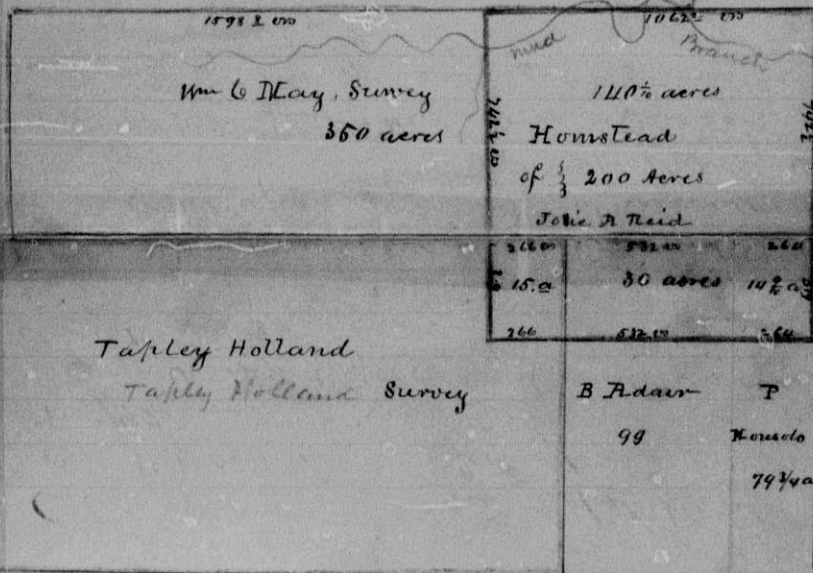 1598 2 vrs
1062 vrs
mud
Branch
Wm C May, Survey
350 acres
742½ vrs
140 4/10 acres
742½
Homstead
of } 200 Acres
Josie A Reid
266 vrs
532 vrs
264
15. a
30 acres
266
532 vrs
264
Tapley Holland
Tapley Holland Survey
B Adair
99
P
79 3/4 a